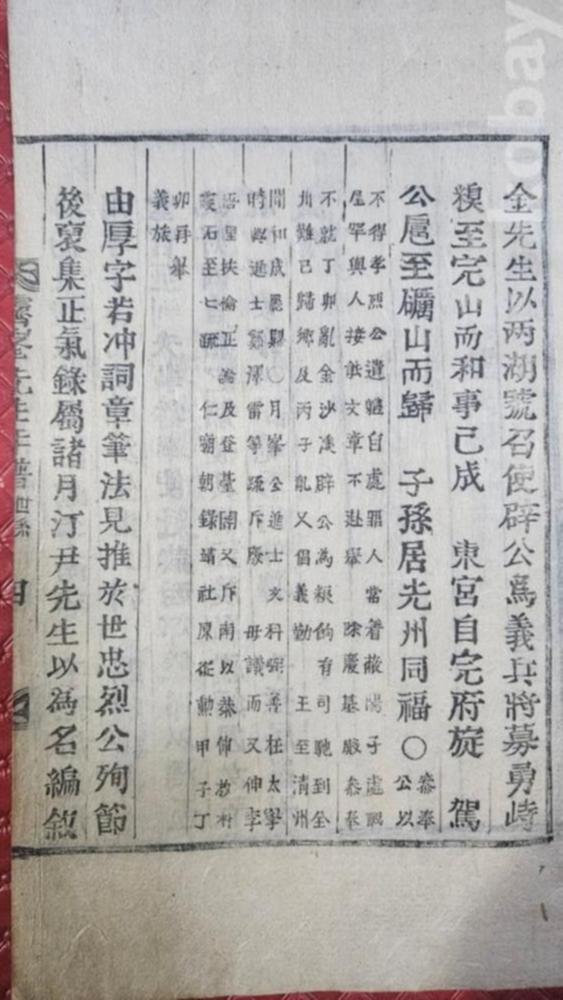 金先生以兩湖號召使辟公爲義兵將募勇峙
糗至完山而和事已成 東宮自完府旋 駕
公扈至礪山而歸 子孫居光州同福○
參奉
公以
不得孝烈公遺體自處罪人當着敝陽子處
屋罕與人接 文章不赴擧 除慶基殿參奉
不就丁卯亂金沙溪辟公為 餉有司馳到全
州難已歸鄉及丙子亂又倡義勤 王至淸州
聞和成 ○月峯公進士文科 善在太學
時與進士 澤雷等疏斥廢 母議而又伸李
扶倫正論及登臺閣又斥南以恭伸
至七 仁廟朝錄靖社原從勳甲子丁
卯再擧
義旅
由厚字若冲詞章筆法見推於世忠烈公殉節
後裒集正氣錄屬諸月汀尹先生以為名編敘
霽峯先生 譜 世系
四
kobay